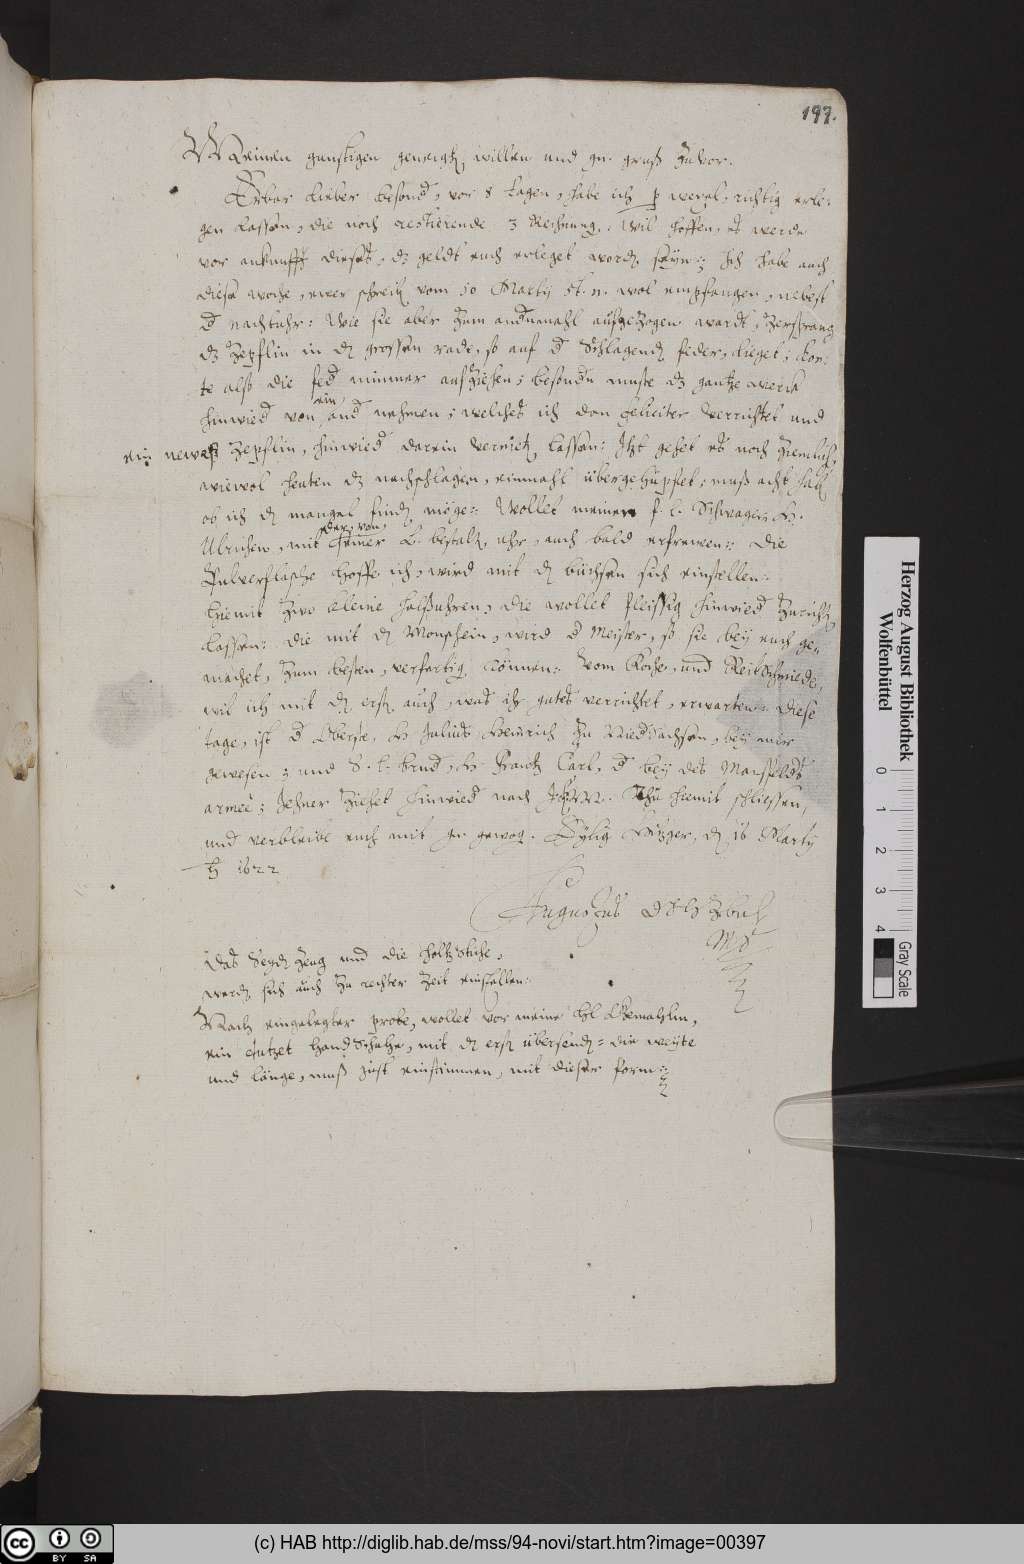 197.
Meinen gunstigen geneigtẽ willen und gn. gruß zuvor.
Erbar lieber besond, vor 8 tagen, habe ich p wexel, richtig erle-
gen lassen, die noch restierende 3 Rechnung: Wil hoffen, es werde
vor ankunfft dieses, dz geldt euch erleget word seyn: Ich habe auch
diese woche, ewer schreib vom 10 Martij st. n. wol empfangen, nebest
d nachtuhr: Wie sie aber zum andnmahl aufgezogen wardt, zersprang
dz Zepflin in d grossen rade, so auf d Schlagend feder, lieget; kon-
te also die fed nimmer aufziehen; besondn muste dz gantze werck
hinwied von
ein
and nehmen; welches ich den feliciter verrichtet und
ein newes Zepflin, hinwied darein vernietẽ lassen: Itzt gehet es noch zimlich,
wiewol heuten dz nachschlagen, einmahl übergehüpfet; muß acht hab
ob ich d mangel find möge: Wollet meinen f. l. Schwager H.
Ulrichen, mit
oder, von,
seiner L. bestalt uhr, auch bald erfrewen: Die
Pulverflasche hoffe ich, wird mit d büchsen sich einstellen:
hiemit zwo kleine halßuhren, die wollet fleissig hinwied zuricht
lassen: die mit d Monschein, wird d Meister, so sie bey euch ge-
machet, zum besten, verfertig können: Vom Koche, und Reitschmiede,
wil ich mit d erst auch, was ihr gutes verrichtet, erwarten: Diese
tage, ist d Oberste, H Julius Heinrich zu Niedsachsen, bey mir
gewesen; und S. l. brud, H. Frantz Carl, d bey des Mansfelds
armee; Jehner ziehet hinwied nach Thu hiemit schliessen,
und verbleibe euch mit gn. gewog. Eylig Hitzger, d 16 Martij
1622
Augustus D J H Z B u L
Mp
Das Seyd Zeug und die holtz Stiche,
werd sich auch zu rechter zeit einstellen:
Nach eingelegter probe, wollet vor meine hl Gemahlin,
ein dutzet handschuhe, mit d erst übersend: die weyte
und länge, muß just einstimmen, mit dieser form:
Herzog August Bibliothek
Wolfenbüttel
0 1 2 3 4
Gray Scale
cc BY SA
(c) HAB http://diglib.hab.de/mss/94-novi/start.htm?image=00397